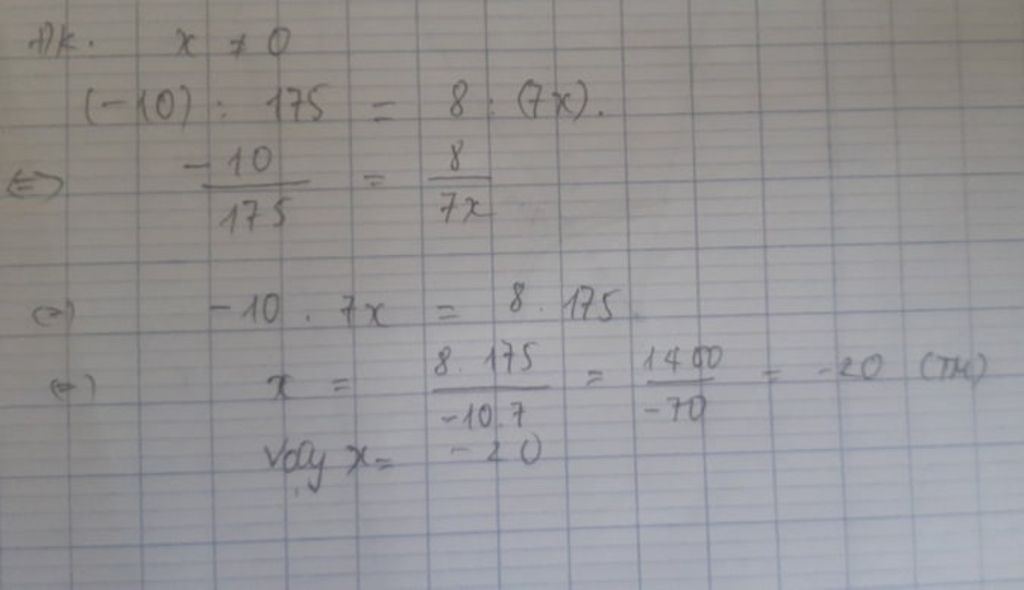 ĐK. x ≠ 0
(-10) : 175 = 8 : (7x).
⇔ -10/175 = 8/7x
⇔ -10 . 7x = 8 . 175
⇔ x = 8.175/-10.7 = 1400/-70 = -20 (TM)
Vậy x = -20